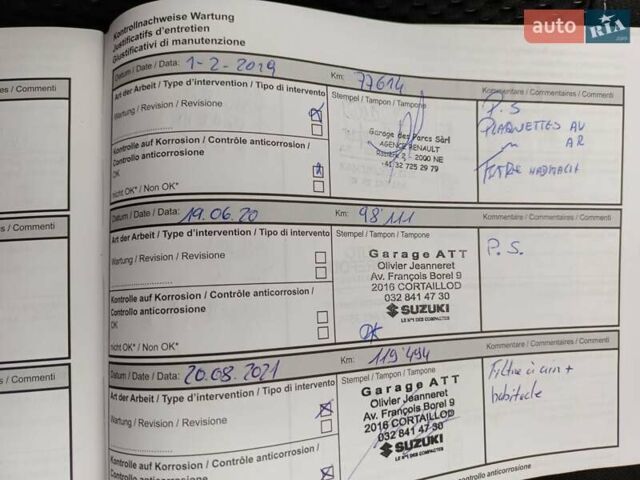 auto RIA.com
Kontrollnachweise Wartung
Justificatifs d'entretien
Giustificativi di manutenzione
/ Commenti
Datum / Date / Data: 1-2-2019 Km: 77614 Kommentare / Commentaires / Commenti
Art der Arbeit / Type d'intervention / Tipo di intervento Stempel / Tampon / Tampone P.S
Wartung / Revision / Revisione PLAQUETTES AV
Garage des Parcs Sàrl AR
AGENCE RENAULT
2 - 2000 NE
+41 32 725 29 79
Kontrolle auf Korrosion / Contrôle anticorrosion /
Controllo anticorrosione
OK
nicht OK* / Non OK*
FILTRE
/ Commenti
Datum / Date / Data: 19.06.20 Km: 98 111 Kommentare / Commentaires / Commenti
Art der Arbeit / Type d'intervention / Tipo di intervento Stempel / Tampon / Tampone P.S.
Wartung / Revision / Revisione
Garage ATT
Olivier Jeanneret
Av. François Borel 9
2016 CORTAILLOD
032 841 47 30
SUZUKI
LE N°1 DES COMPACTES
Kontrolle auf Korrosion / Contrôle anticorrosion /
Controllo anticorrosione
OK
OK
nicht OK* / Non OK*
/ Commenti
Datum / Date / Data: 20.08.2021 Km: 119'494 Kommentare / Commentaires / Commenti
Art der Arbeit / Type d'intervention / Tipo di intervento Stempel / Tampon / Tampone Filtre à air +
Wartung / Revision / Revisione habitacle
Garage ATT
Olivier Jeanneret
Av. François Borel 9
2016 CORTAILLOD
032 841 47 30
SUZUKI
LE N°1 DES COMPACTES
Kontrolle auf Korrosion / Contrôle anticorrosion /
Controllo anticorrosione
controllo anticorrosione